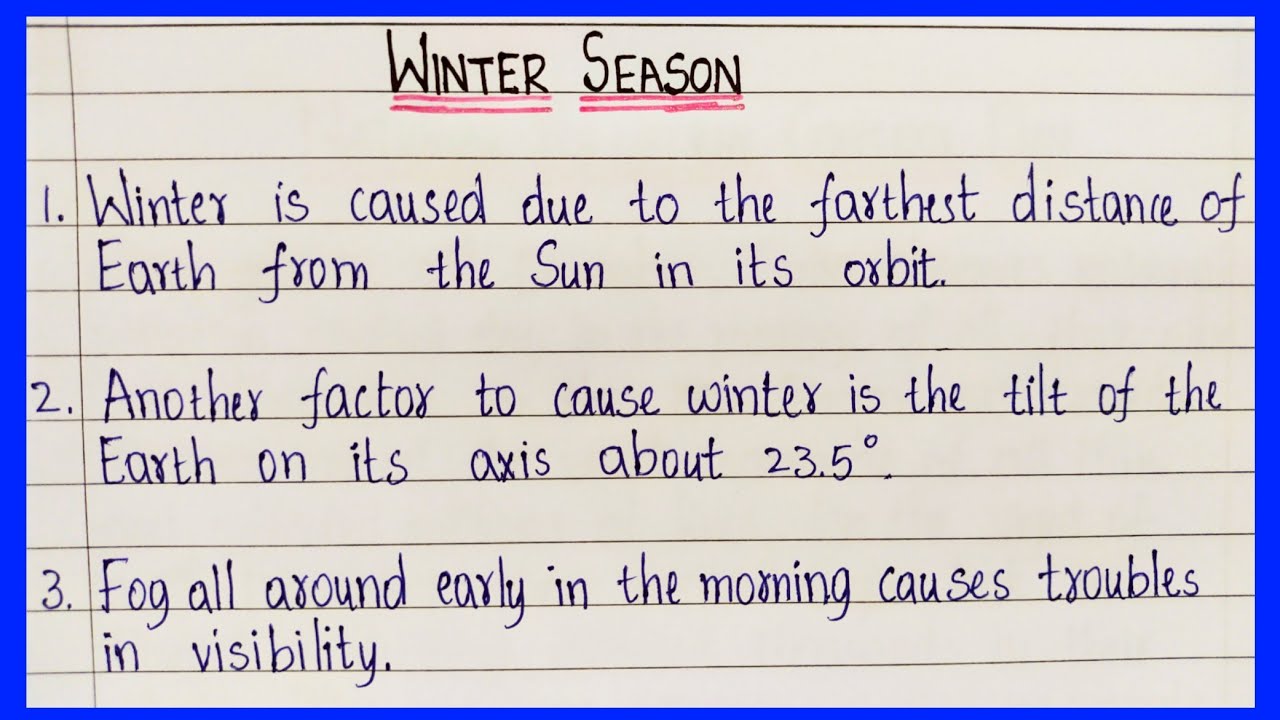 WINTER SEASON
1. Winter is caused due to the farthest distance of
Earth from the Sun in its orbit.
2. Another factor to cause winter is the tilt of the
Earth on its axis about 23.5°.
3. Fog all around early in the morning causes troubles
in visibility.